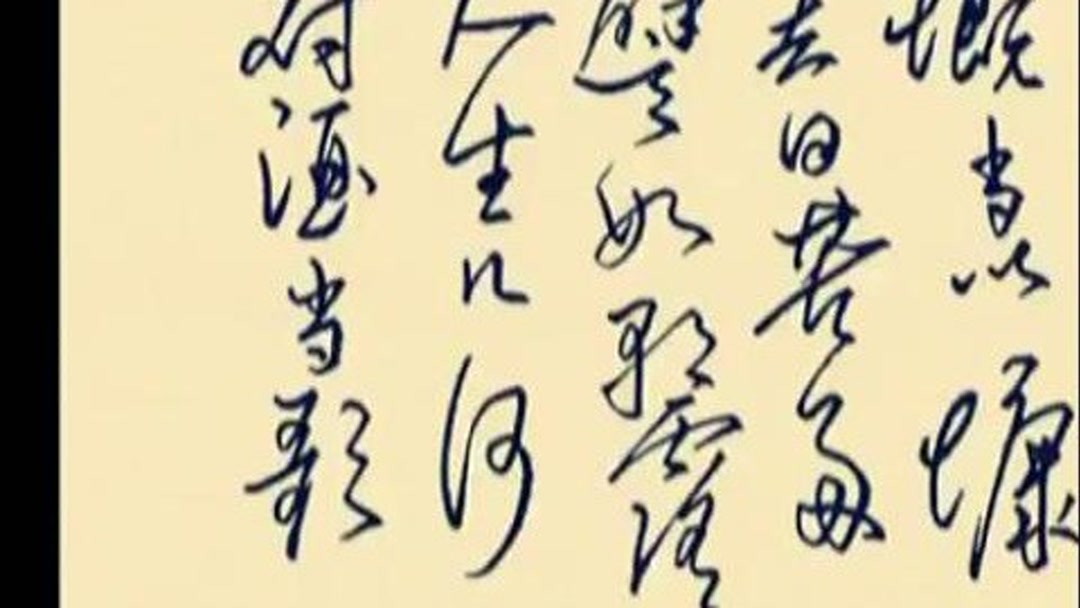 对酒当歌
人生几何
譬如朝露
去日苦多
慨当以慷